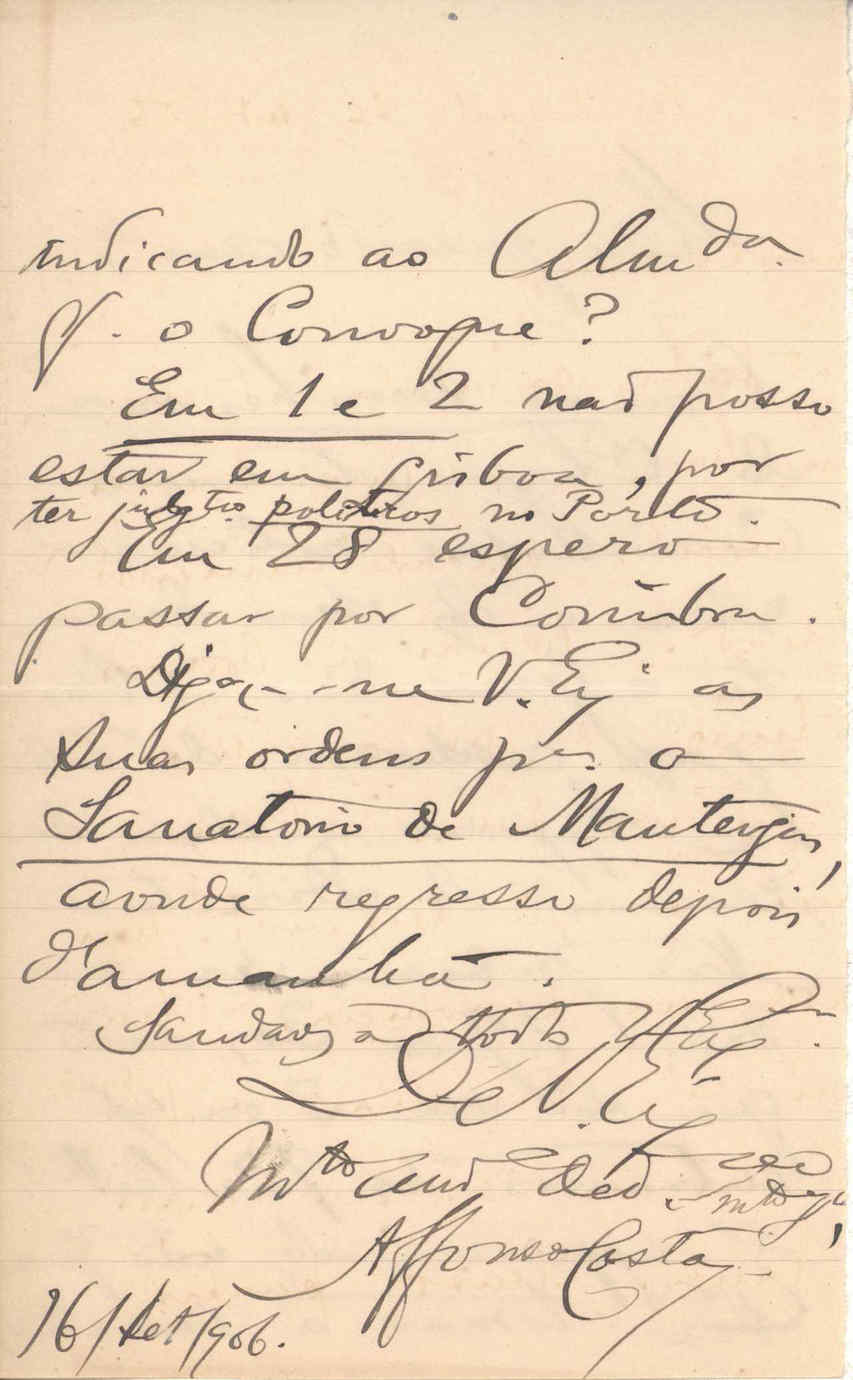 indicando ao Alm.da
q. o Convoque?
Em 1 e 2 não posso
estar em Lisboa, por
ter julg.tos politicos no Porto.
Em 28 espero
passar por Coimbra.
Diga-me V. Ex.ª as
suas ordens p.ª o
Sanatorio de Manteigas,
aonde regresso depois
d'amanhã.
Saudações a todos
De V. Ex.ª
M.to am.º ded.
Affonso Costa
16/set/906.